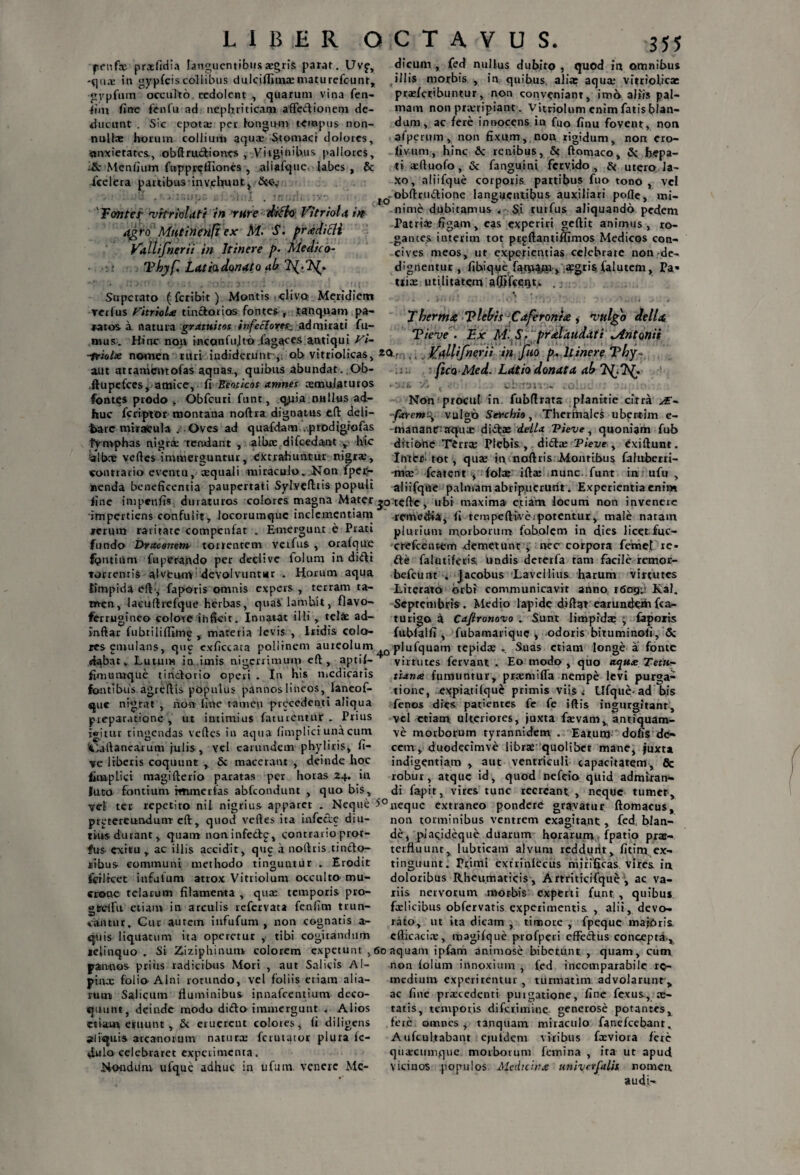 LIBER OCTAVUS. 355
penſæ præſidia languentibus ægris parat. Uvę,
quæ in gypſeis collibus dulciſſimæ matureſcunt,
gypſum occulto redolent , quarum vina ſen-
ſim ſine ſenſu ad nephriticam affectionem de-
ducunt . Sic epotæ per longum tempus non-
nullæ horum collium aquæ Stomaci dolores,
anxietates, obſtructiones , Virginibus pallores,
& Menſium ſuppreſſiones , aliaſque labes , &
ſcelera partibus invehunt, &c.
Fontes vitriolati in rure dicto Vitriola in
agro Mutinenſi ex M. S. prædicti
Valliſnerii in Itinere p. Medico-
Phyſ. Latio donato ab N. N.
Superato ( ſcribit ) Montis clivo Meridiem
verſus Vitriolæ tinctorios fontes , tanquam pa-
ratos à natura gratuitos infectores admirati ſu-
mus. Hinc non inconſulto ſagaces antiqui Vi-
triolæ nomen ruri indiderunt, ob vitriolicas,
aut atramentoſas aquas, quibus abundat. Ob-
ſtupeſces, amice, ſi Exoticos amnes æmulaturos
fontes prodo . Obſcuri ſunt, quia nullus ad-
huc ſcriptor montana noſtra dignatus eſt deli-
bare miracula . Oves ad quaſdam prodigioſas
lymphas nigræ tendant , albæ diſcedant , hîc
albæ veſtes immerguntur, extrahuntur nigræ,
contrario eventu, æquali miraculo. Non ſper-
nenda beneficentia paupertati Sylveſtris populi
ſine impenſis duraturos colores magna Mater
impertiens conſulit, locorumque inclementiam
rerum raritate compenſat . Emergunt è Prati
fundo Draconem torrentem verſus , oraſque
fontium ſuperando per declive ſolum in dicti
torrentis alveum devolvuntur . Horum aqua
limpida eſt, ſaporis omnis expers , terram ta-
men, lacuſtreſque herbas, quas lambit, flavo-
ferrugineo colore inficit. Innatat illi , telæ ad-
inſtar ſubtiliſſimę , materia levis , Iridis colo-
res ęmulans, quę exſiccata pollinem aureolum
dabat. Lutum in imis nigerrimum eſt , aptiſ-
ſimumquè tinctorio operi . In his medicatis
fontibus agreſtis populus pannos lineos, laneoſ-
que nigrat , non ſine tamen pręcedenti aliqua
pręparatione , ut intimius ſaturentur . Prius
igitur tingendas veſtes in aqua ſimplici unà cum
Caſtanearum julis, vel earundem phyliris, ſi-
ve liberis coquunt , & macerant , deinde hoc
ſimplici magiſterio paratas per horas 24. in
luto fontium immerſas abſcondunt , quo bis,
vel ter repetito nil nigrius apparet . Nequè
prętereundum eſt, quod veſtes ita infectę diu-
tius durant, quam non infectę, contrario pror-
ſus exitu , ac illis accidit, quę à noſtris tincto-
ribus communi methodo tinguntur . Erodit
ſcilicet infuſum atrox Vitriolum occulto mu-
crone telarum filamenta , quæ temporis pro-
greſſu etiam in arculis reſervata ſenſim trun-
cantur. Cur autem infuſum , non cognatis a-
quis liquatum ita operetur , tibi cogitandum
relinquo . Si Ziziphinum colorem expetunt ,
pannos priùs radicibus Mori , aut Salicis Al-
pinæ folio Alni rotundo, vel foliis etiam alia-
rum Salicum fluminibus innaſcentium deco-
quunt, deinde modo dicto immergunt . Alios
etiam eruunt , & eruerent colores, ſi diligens
aliquis arcanorum naturæ ſcrutator plura ſe-
dulo celebraret experimenta.
Nondum uſquè adhuc in uſum venere Me-
dicum , ſed nullus dubito , quod in omnibus
illis morbis , in quibus aliæ aquæ vitriolicæ
præſcribuntur, non conveniant, imò aliis pal-
mam non præripiant. Vitriolum enim ſatis blan-
dum, ac ferè innocens in ſuo ſinu fovent, non
aſperum, non fixum, non rigidum, non ero-
ſivum, hinc & renibus, & ſtomaco, & hepa-
ti æſtuoſo, & ſanguini fervido, & utero la-
xo, aliiſquè corporis partibus ſuo tono , vel
obſtructione languentibus auxiliari poſſe, mi-
nimè dubitamus . Si rurſus aliquandò pedem
Patriæ figam, eas experiri geſtit animus , ro-
gantes interim tot pręſtantiſſimos Medicos con-
cives meos, ut experientias celebrare non de-
dignentur , ſibique famam, ægris ſalutem, Pa-
triæ utilitatem adſiſcent.
Thermæ Plebis Caferoniæ , vulgò della
Pieve . Ex M. S. prælaudati Antonii
Valliſnerii in ſuo p. Itinere Phy-
ſico Med. Latio donata ab N. N.
Non procul in ſubſtrata planitie citrà Æ-
ſarem, vulgò Serchio , Thermales ubertim e-
manant aquæ dictæ della Pieve, quoniam ſub
ditione Terræ Plebis, dictæ Pieve , exiſtunt.
Inter tot , quæ in noſtris Montibus ſaluberri-
mæ ſcatent , ſolæ iſtæ nunc ſunt in uſu ,
aliiſque palmam abripuerunt. Experientia enim
teſte, ubi maxima etiam locum non invenere
remedia, ſi tempeſtivè potentur, malè natam
plurium morborum ſobolem in dies licet ſuc-
creſcentem demetunt , nec corpora ſemel re-
ctè ſalutiferis undis deterſa tam facilè remor-
beſcunt . Jacobus Lavellius harum virtutes
Literato orbi communicavit anno 1609. Kal.
Septembris . Medio lapide diſtat earundem ſca-
turigo à Caſtronovo . Sunt limpidæ , ſaporis
ſubſalſi , ſubamarique , odoris bituminoſi, &
pluſquam tepidæ . Suas etiam longè à fonte
virtutes ſervant . Eo modo , quo aquæ Tetu-
tianæ ſumuntur, præmiſſa nempè levi purga-
tione, expiatiſquè primis viis . Uſquè ad bis
ſenos dies patientes ſe ſe iſtis ingurgitant,
vel etiam ulteriores, juxta ſævam, antiquam-
vè morborum tyrannidem . Earum doſis de-
cem, duodecimvè libræ quolibet mane, juxta
indigentiam , aut ventriculi capacitatem, &
robur, atque id, quod neſcio quid admiran-
di ſapit, vires tunc recreant , neque tumet,
neque extraneo pondere gravatur ſtomacus,
non torminibus ventrem exagitant , ſed blan-
dè, placidèquè duarum horarum ſpatio præ-
terfluunt, lubricam alvum reddunt, ſitim ex-
tinguunt. Primi extrinſecus mirificas vires in
doloribus Rheumaticis, Artriticiſquè, ac va-
riis nervorum morbis experti ſunt , quibus
fælicibus obſervatis experimentis , alii, devo-
rato, ut ita dicam , timore , ſpeque majoris
efficaciæ, magiſquè proſperi effectus concepta,
aquam ipſam animosè bibetunt , quam, cum
non ſolum innoxium , ſed incomparabile re-
medium experirentur , turmatim advolarunt,
ac ſine præcedenti purgatione, ſine ſexus, æ-
tatis, temporis diſcrimine generosè potantes,
ferè omnes , tanquam miraculo ſaneſcebant.
Auſcultabant ejuſdem viribus ſæviora ferè
quæcumque morborum ſemina , ita ut apud
vicinos populos Medicinæ univerſalis nomen
audi-